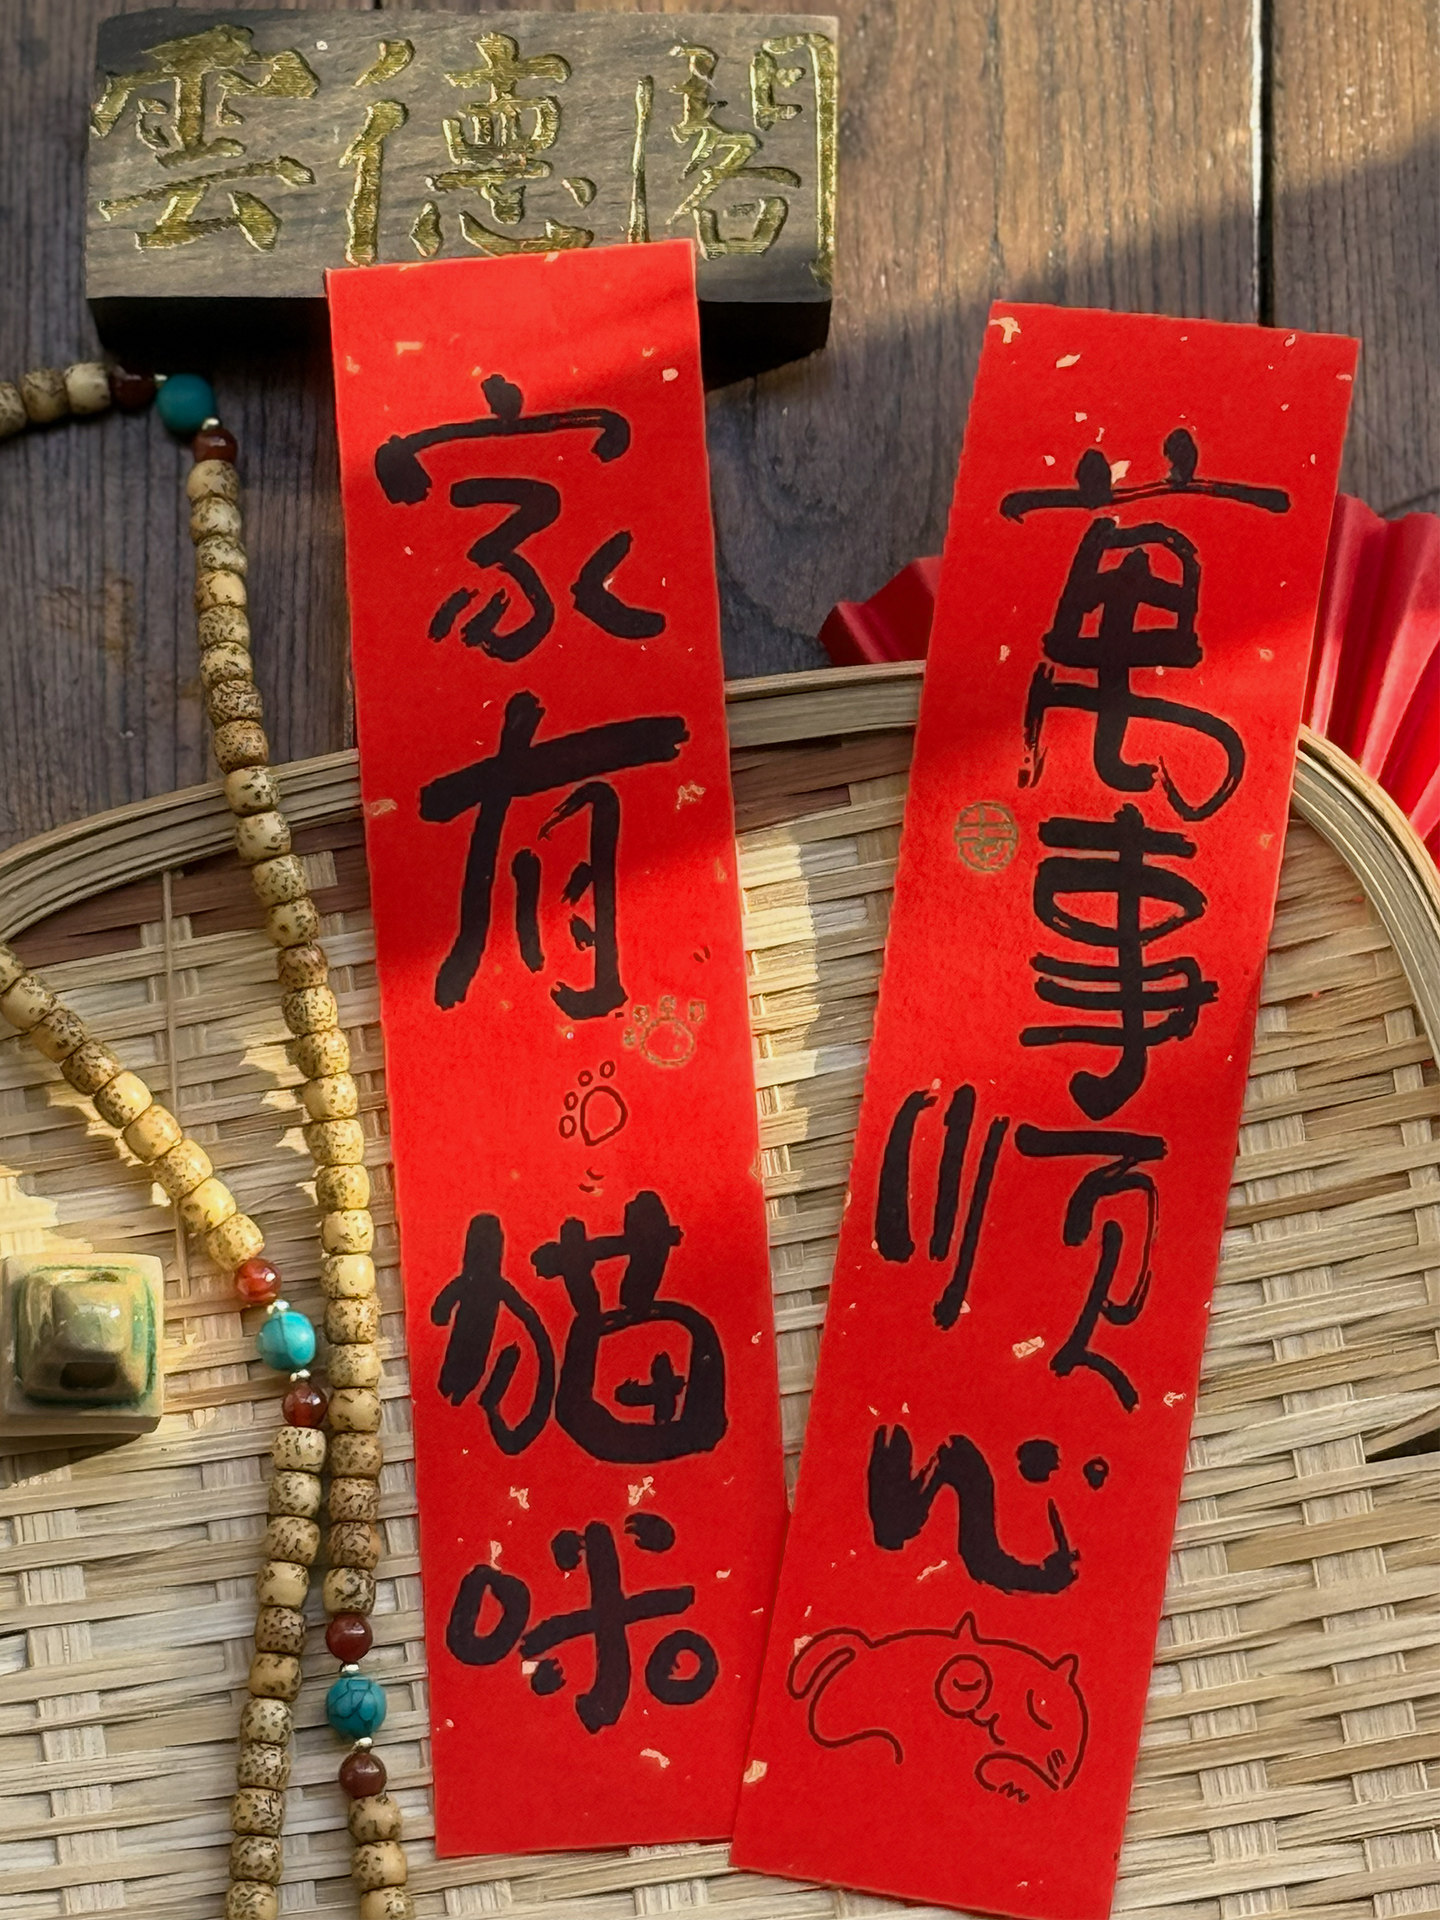 雲德閣
家有猫咪
萬事顺心